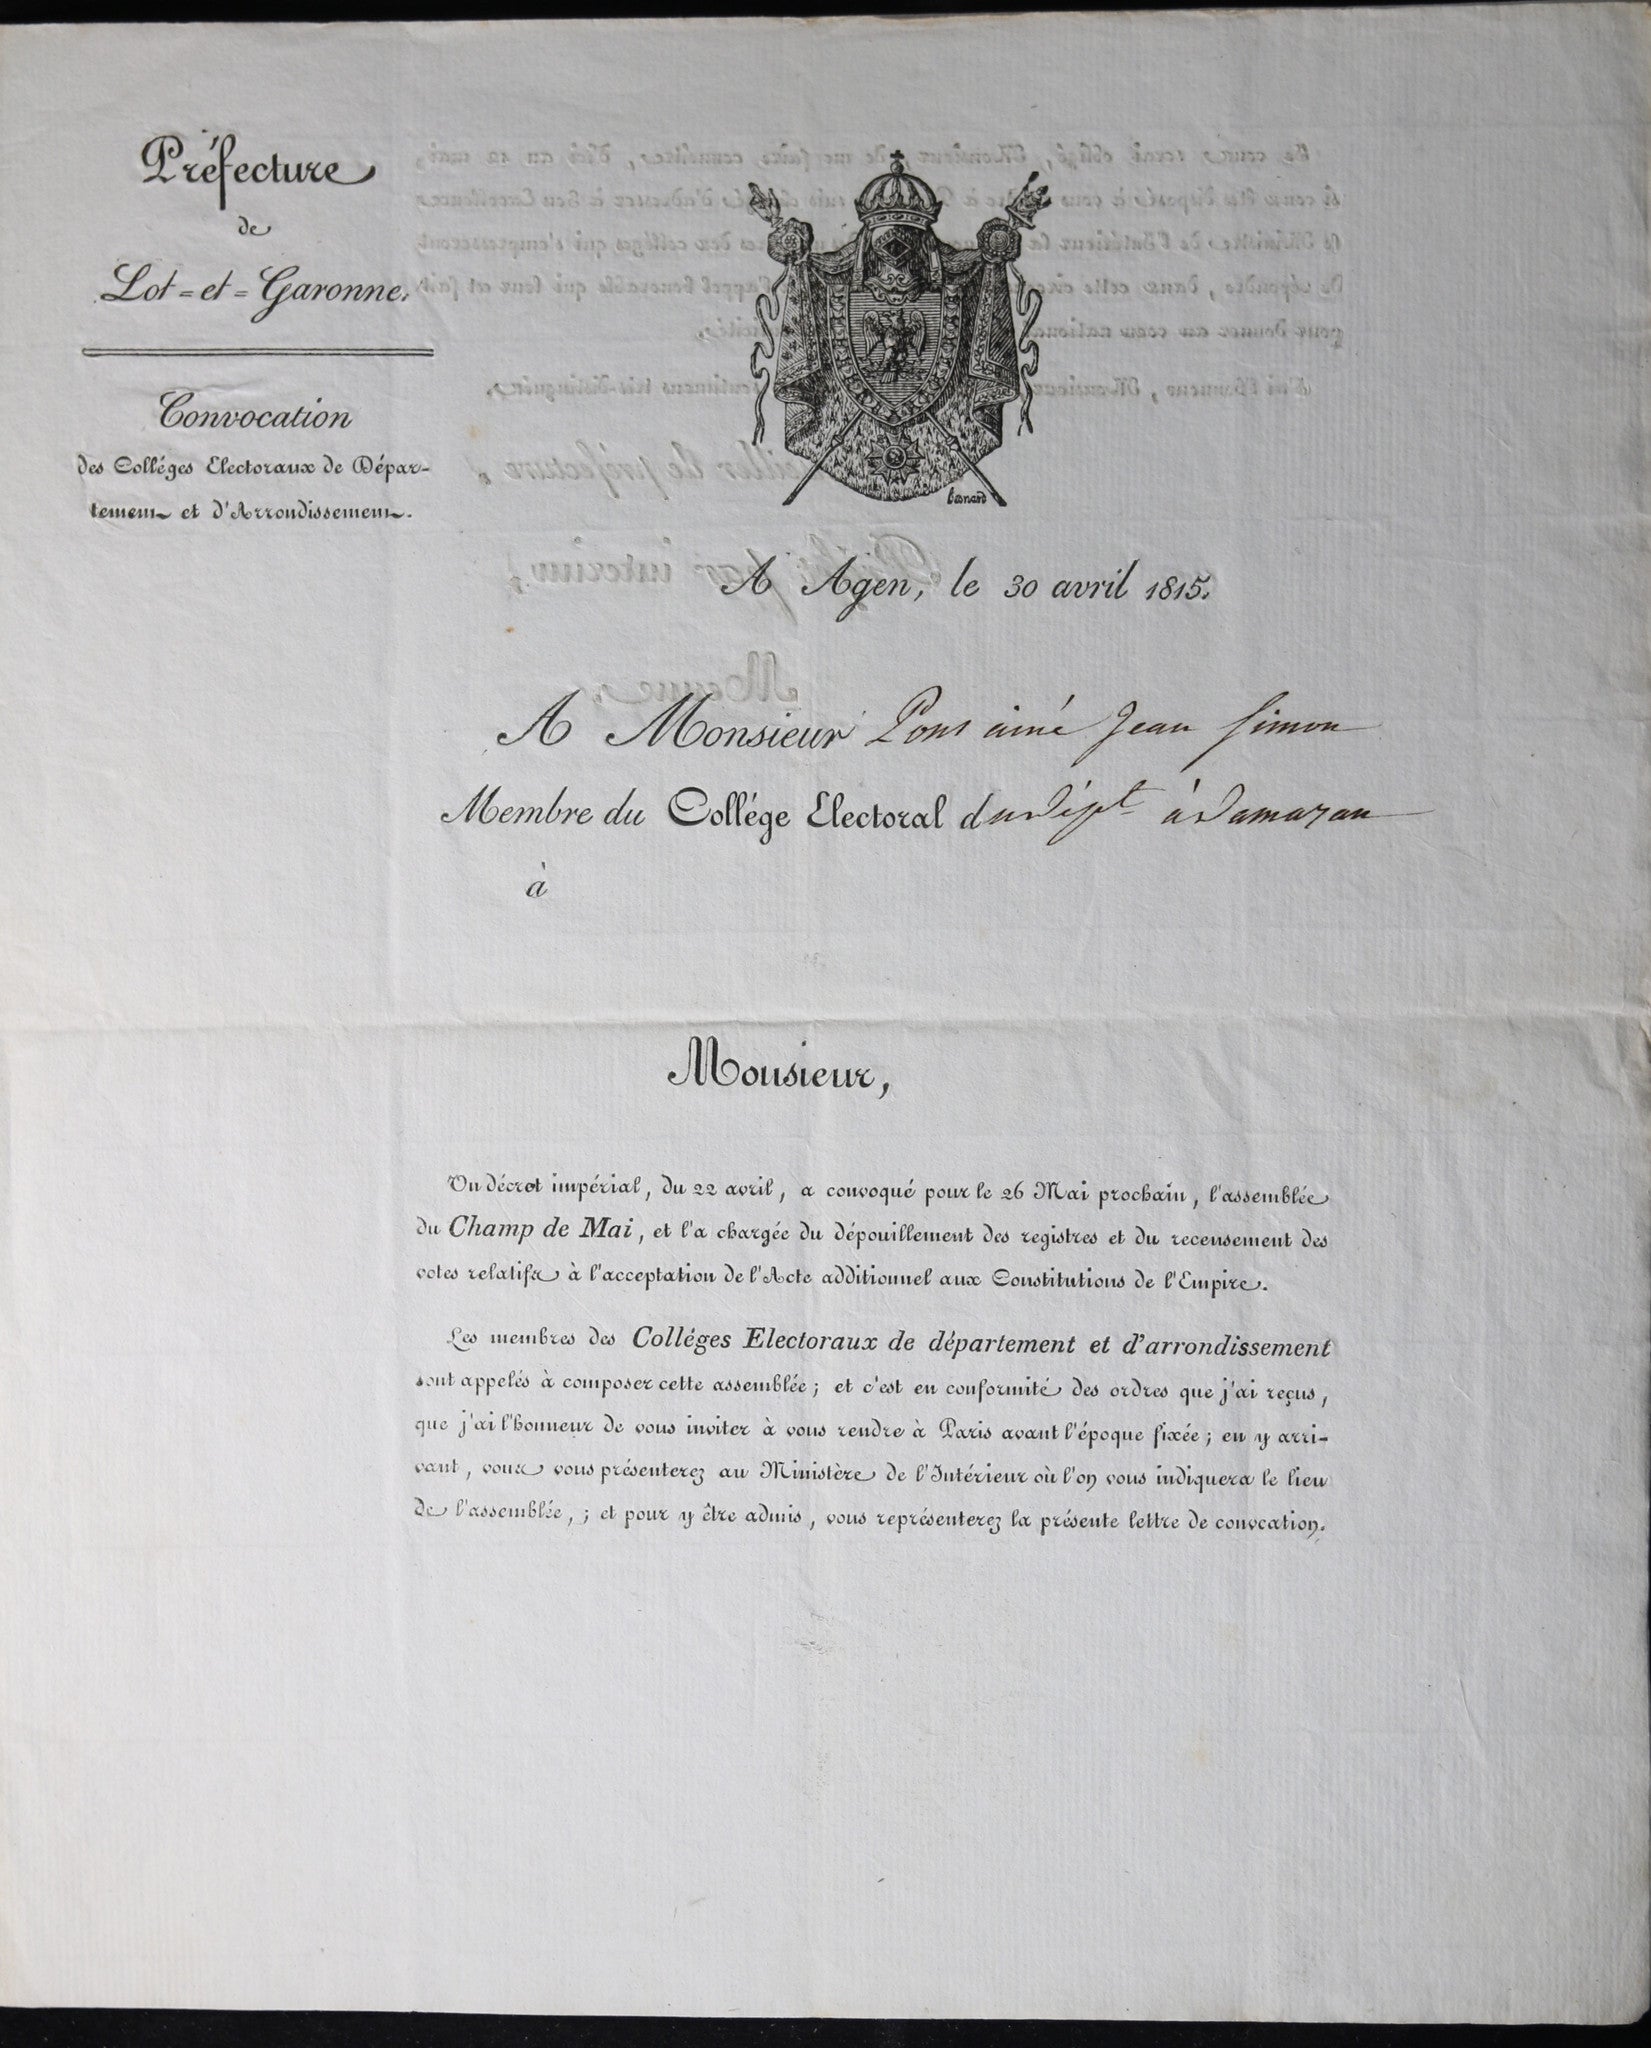 Préfecture
de
Lot=et=Garonne.
Convocation
des Colléges Electoraux de Dépar-
tement et d'Arrondissement.
besnard
A Agen, le 30 avril 1815.
A Monsieur Pons ainé Jean Simon
Membre du Collége Electoral du Dépt à Damazan
à
Monsieur,
Un décret impérial, du 22 avril, a convoqué pour le 26 Mai prochain, l'assemblée
du Champ de Mai, et l'a chargée du dépouillement des registres et du recensement des
votes relatifs à l'acceptation de l'Acte additionnel aux Constitutions de l'Empire.
Les membres des Colléges Electoraux de département et d'arrondissement
sont appelés à composer cette assemblée; et c'est en conformité des ordres que j'ai reçus,
que j'ai l'honneur de vous inviter à vous rendre à Paris avant l'époque fixée; en y arri-
vant, vous vous présenterez au Ministère de l'Intérieur où l'on vous indiquera le lieu
de l'assemblée, ; et pour y être admis, vous représenterez la présente lettre de convocation.